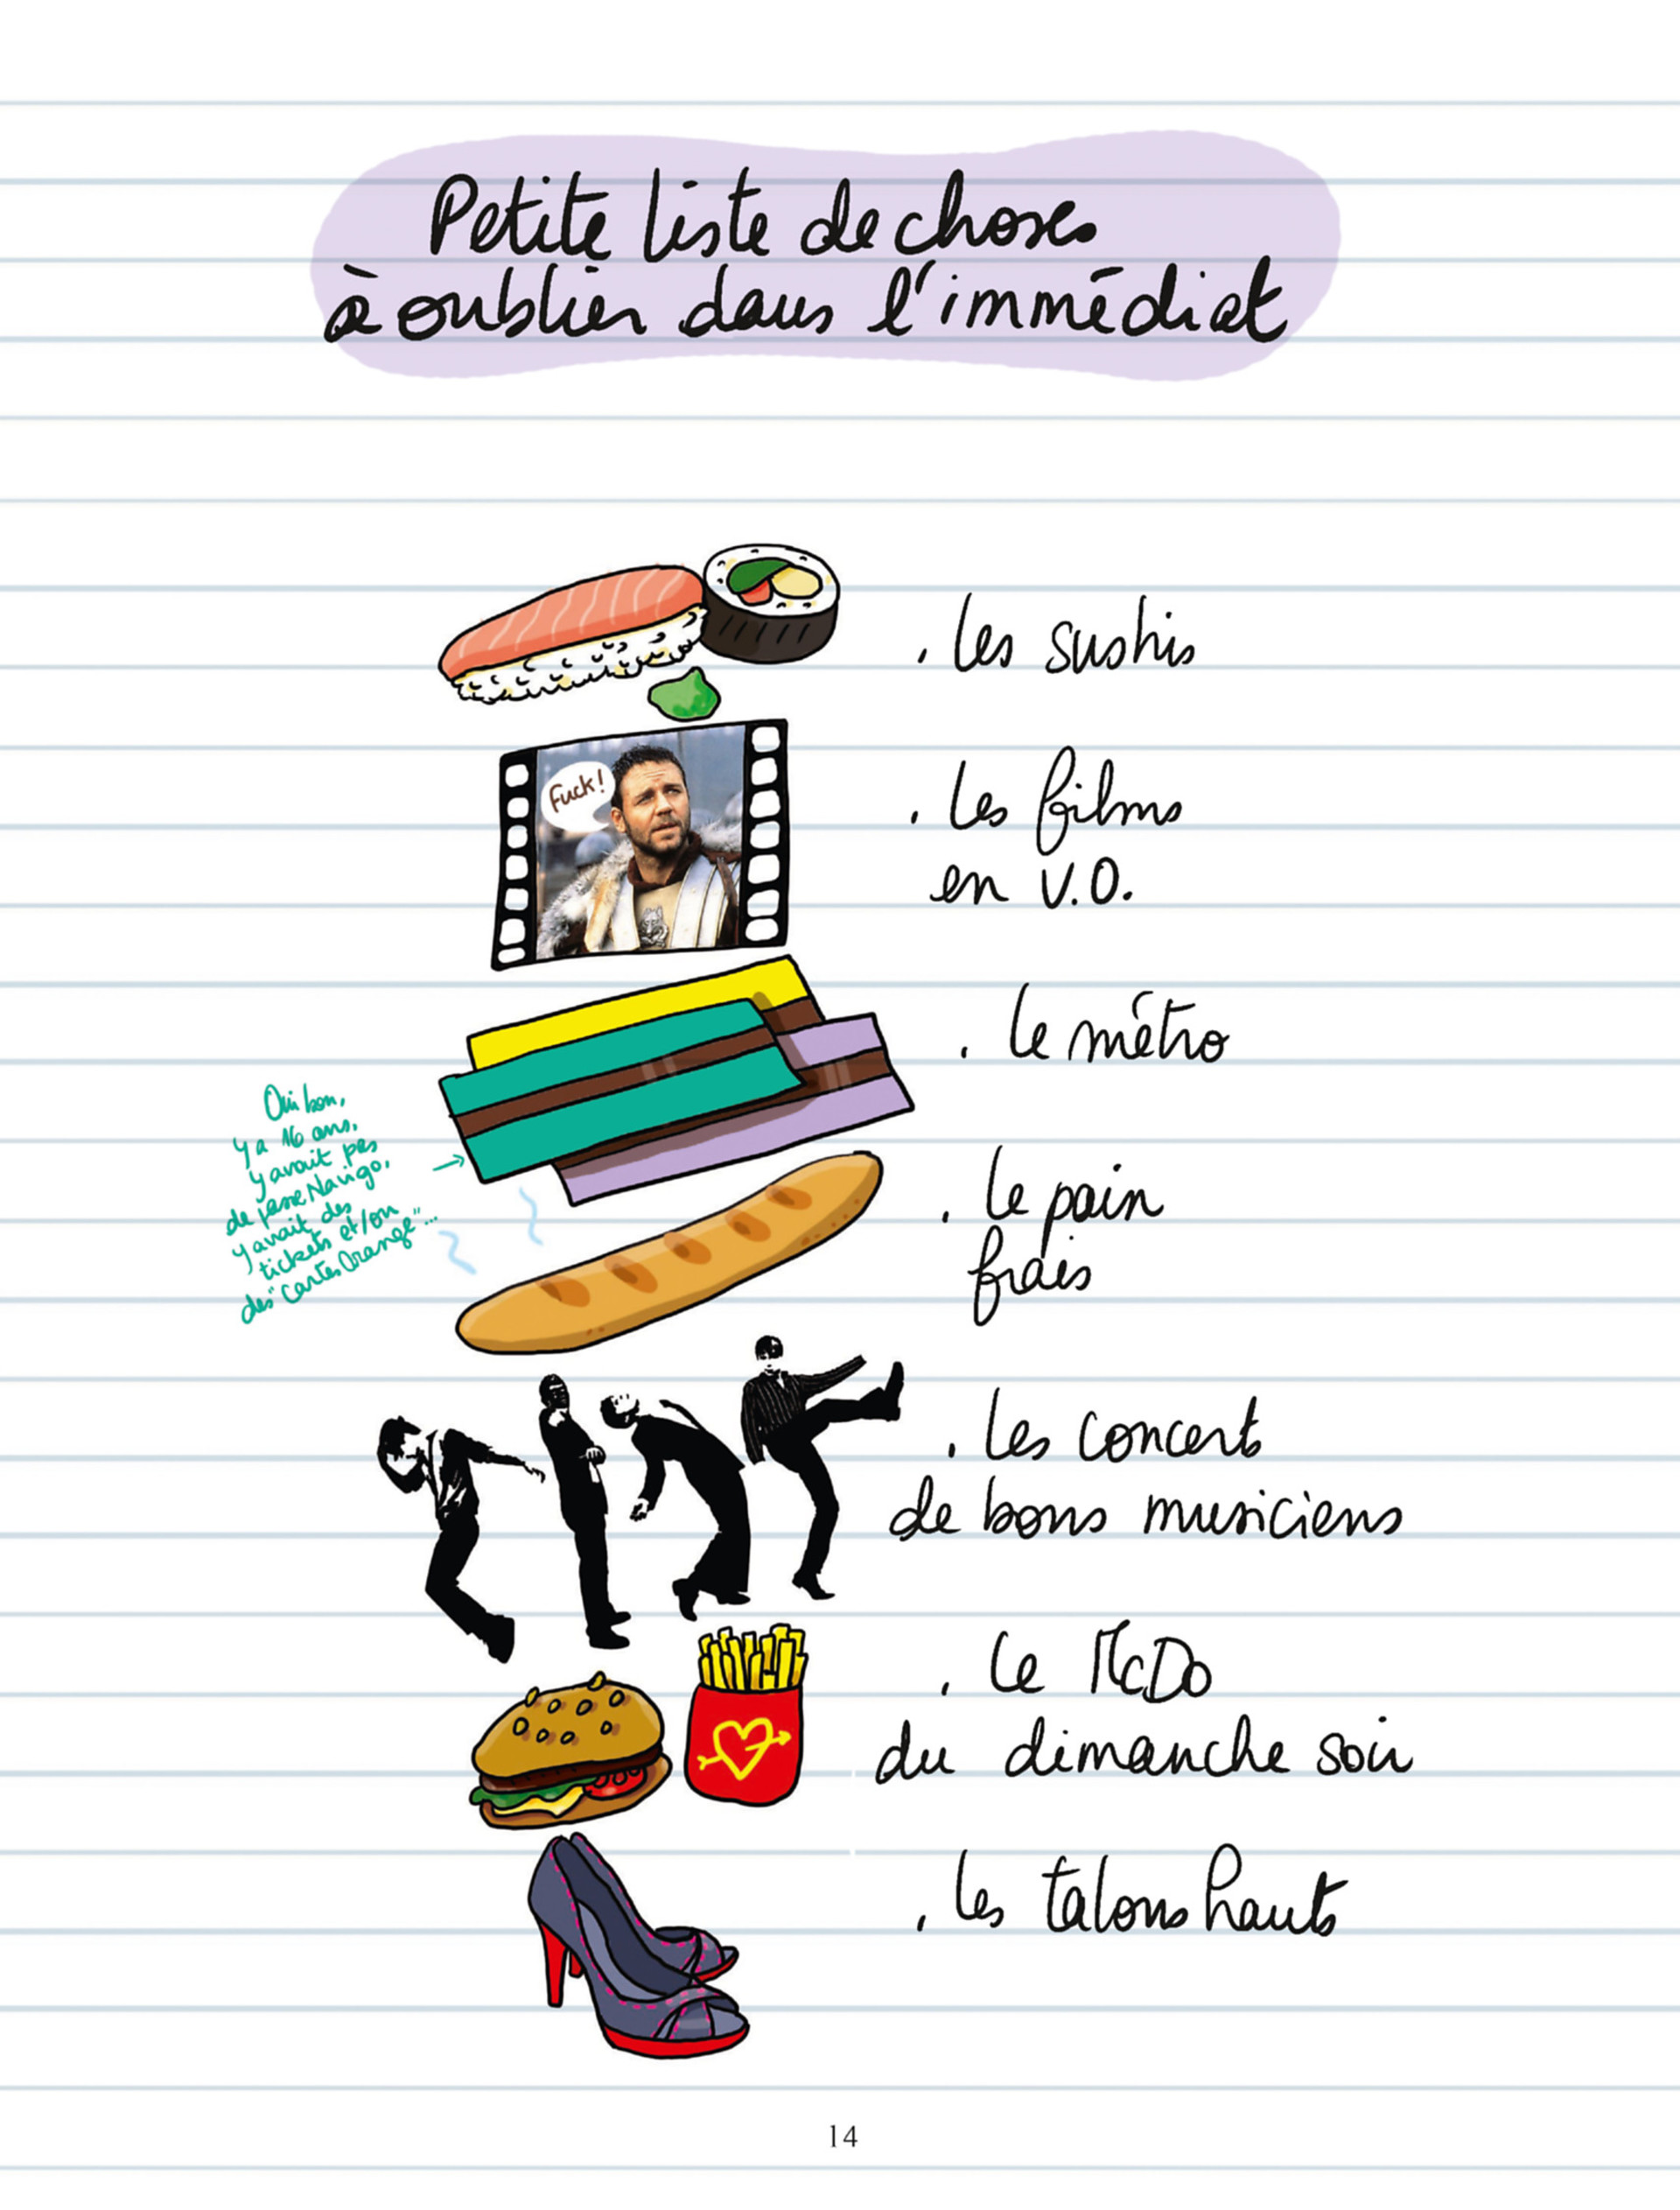 Petite liste de choses
à oublier dans l'immédiat
. les sushis
Fuck!
. les films
en V.O.
. le métro
Oui bon,
y a 16 ans,
y avait pas
de passe Navigo,
y avait des
tickets et/ou
des "Cartes Orange"...
. le pain
frais
. les concerts
de bons musiciens
. le McDo
du dimanche soir
. les talons hauts
14